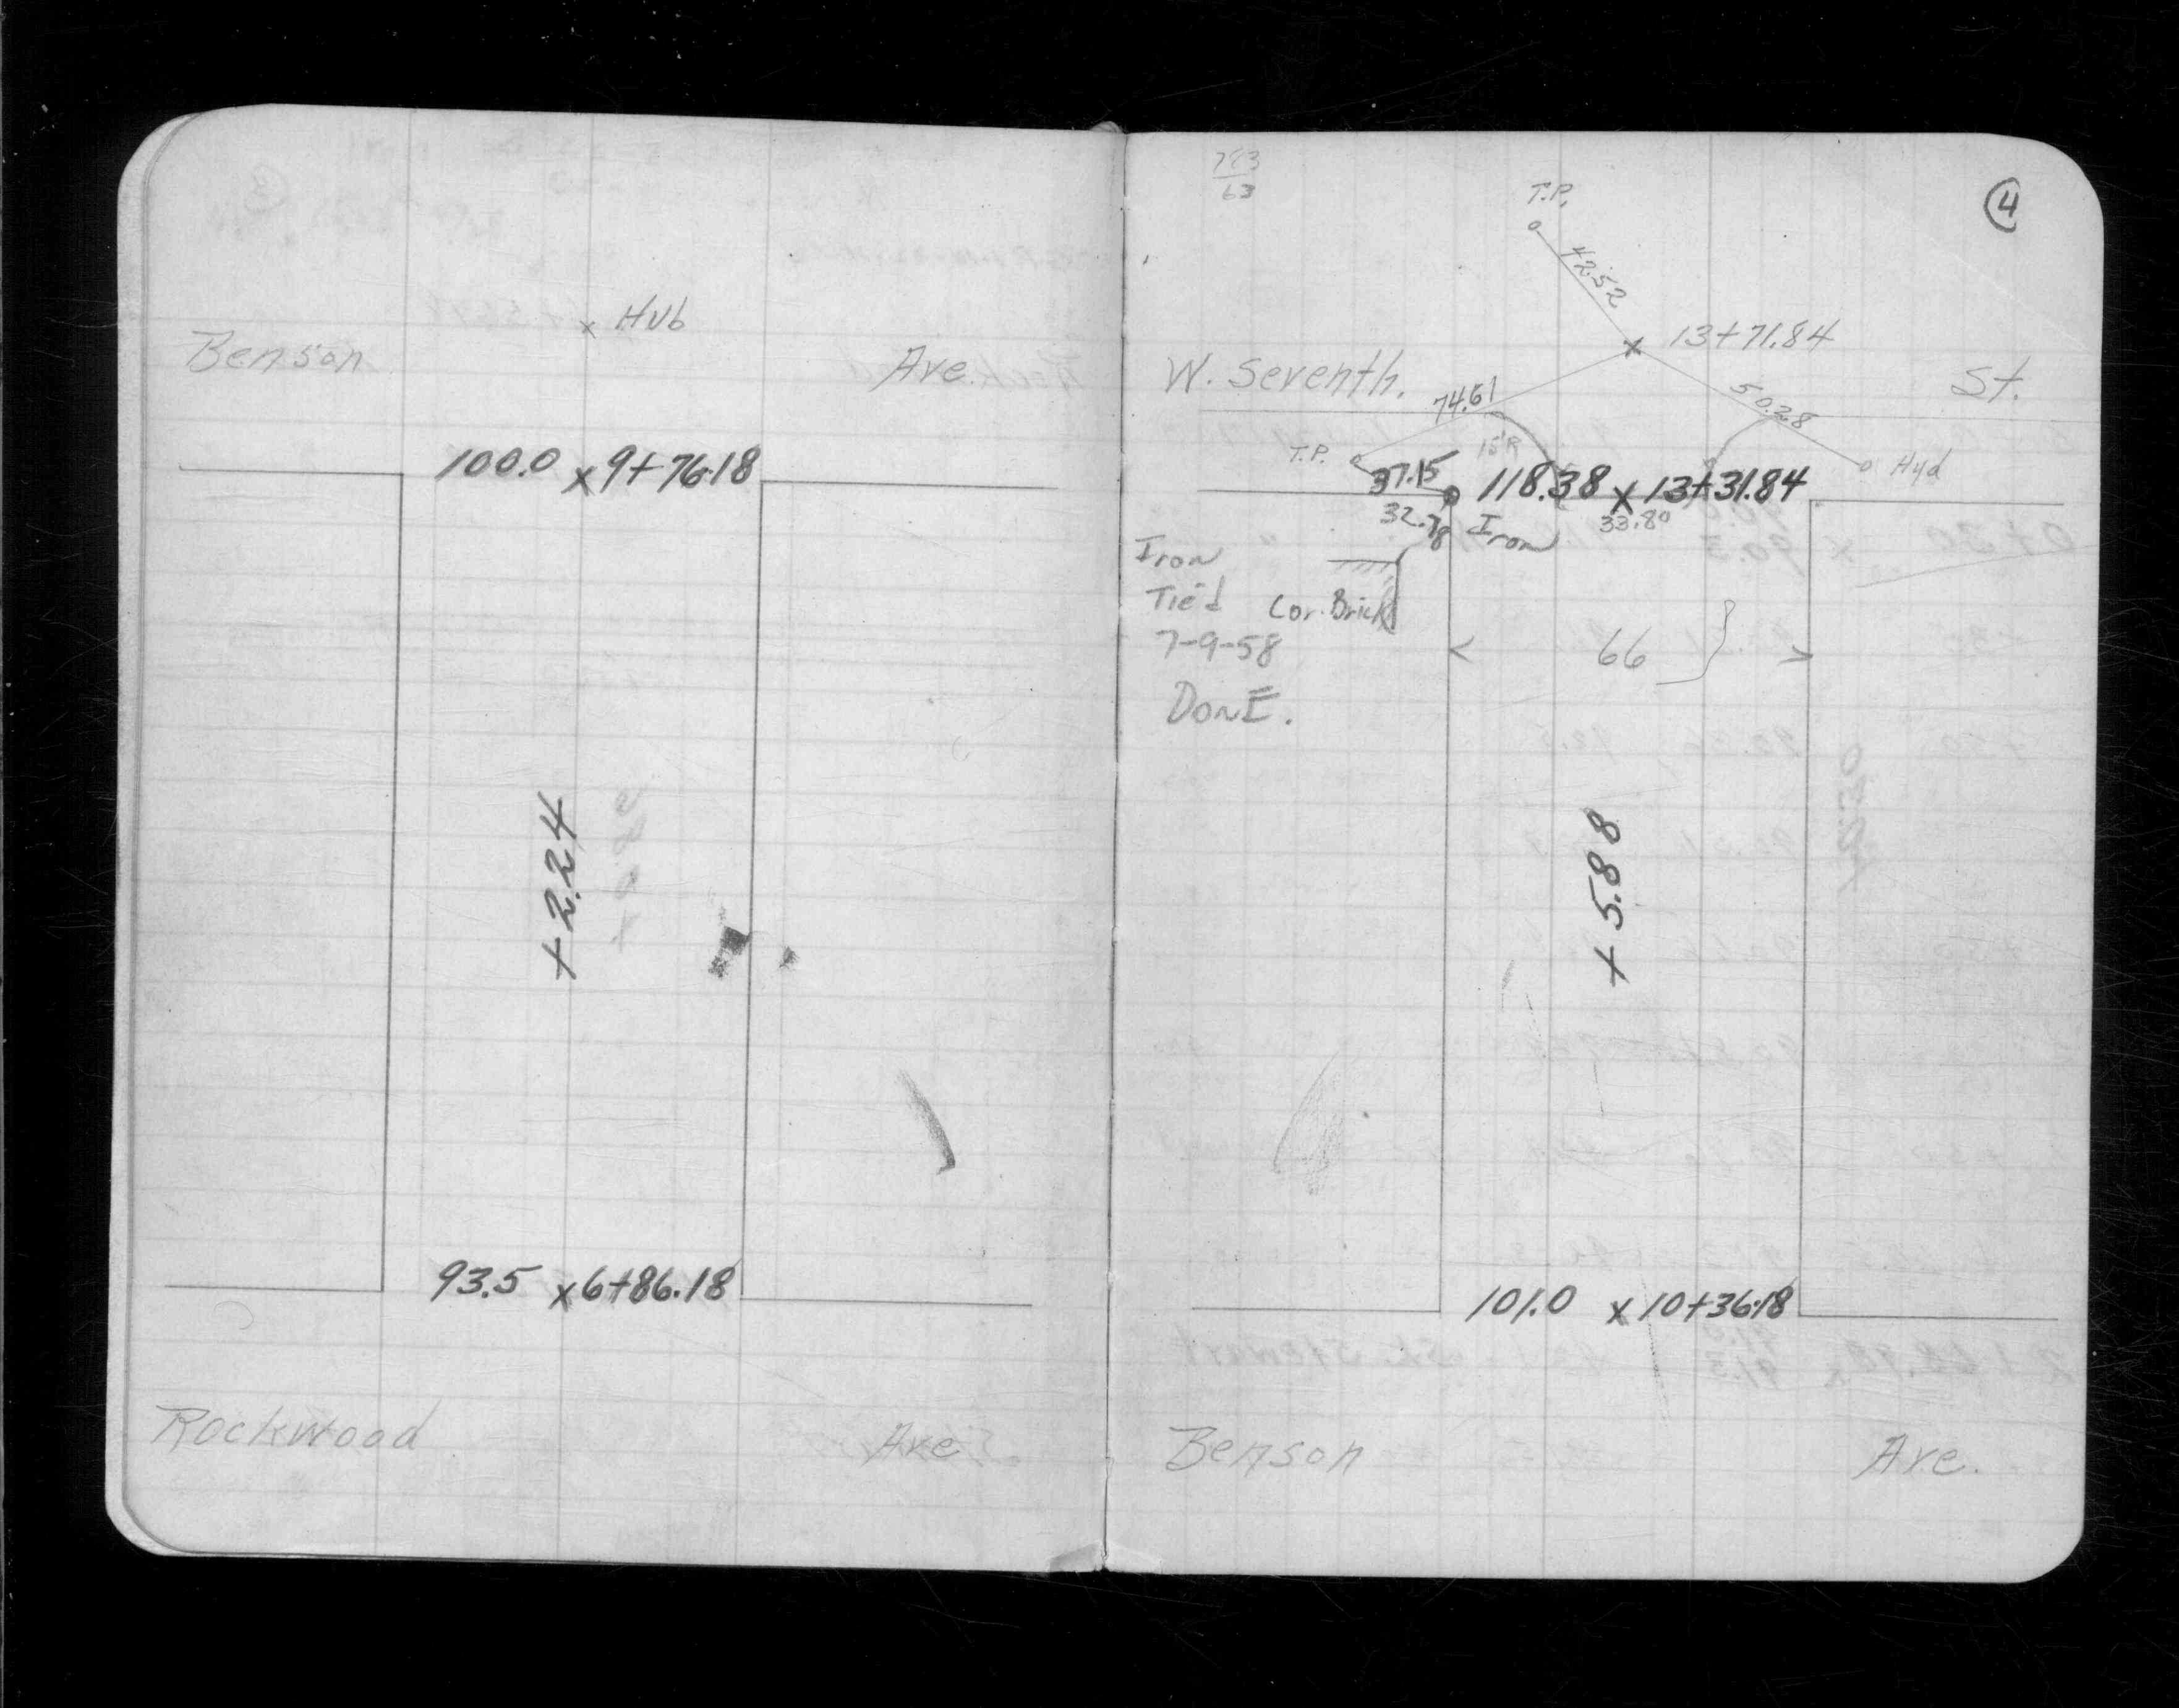 Hub
Benson Ave.
100.0 x 9+76.18
+2.24
93.5 x 6+86.18
Rockwood Ave.
4
63
T.P.
42.52
13+71.84
W. Seventh. St.
74.61
50.28
15'R
T.P.
Hyd
37.15
118.38 x 13+31.84
32.78
Iron
33.80
Iron
Tie'd
Cor. Brick
7-9-58
DonE.
< 66 >
+5.88
101.0 x 10+36.18
Benson Ave.